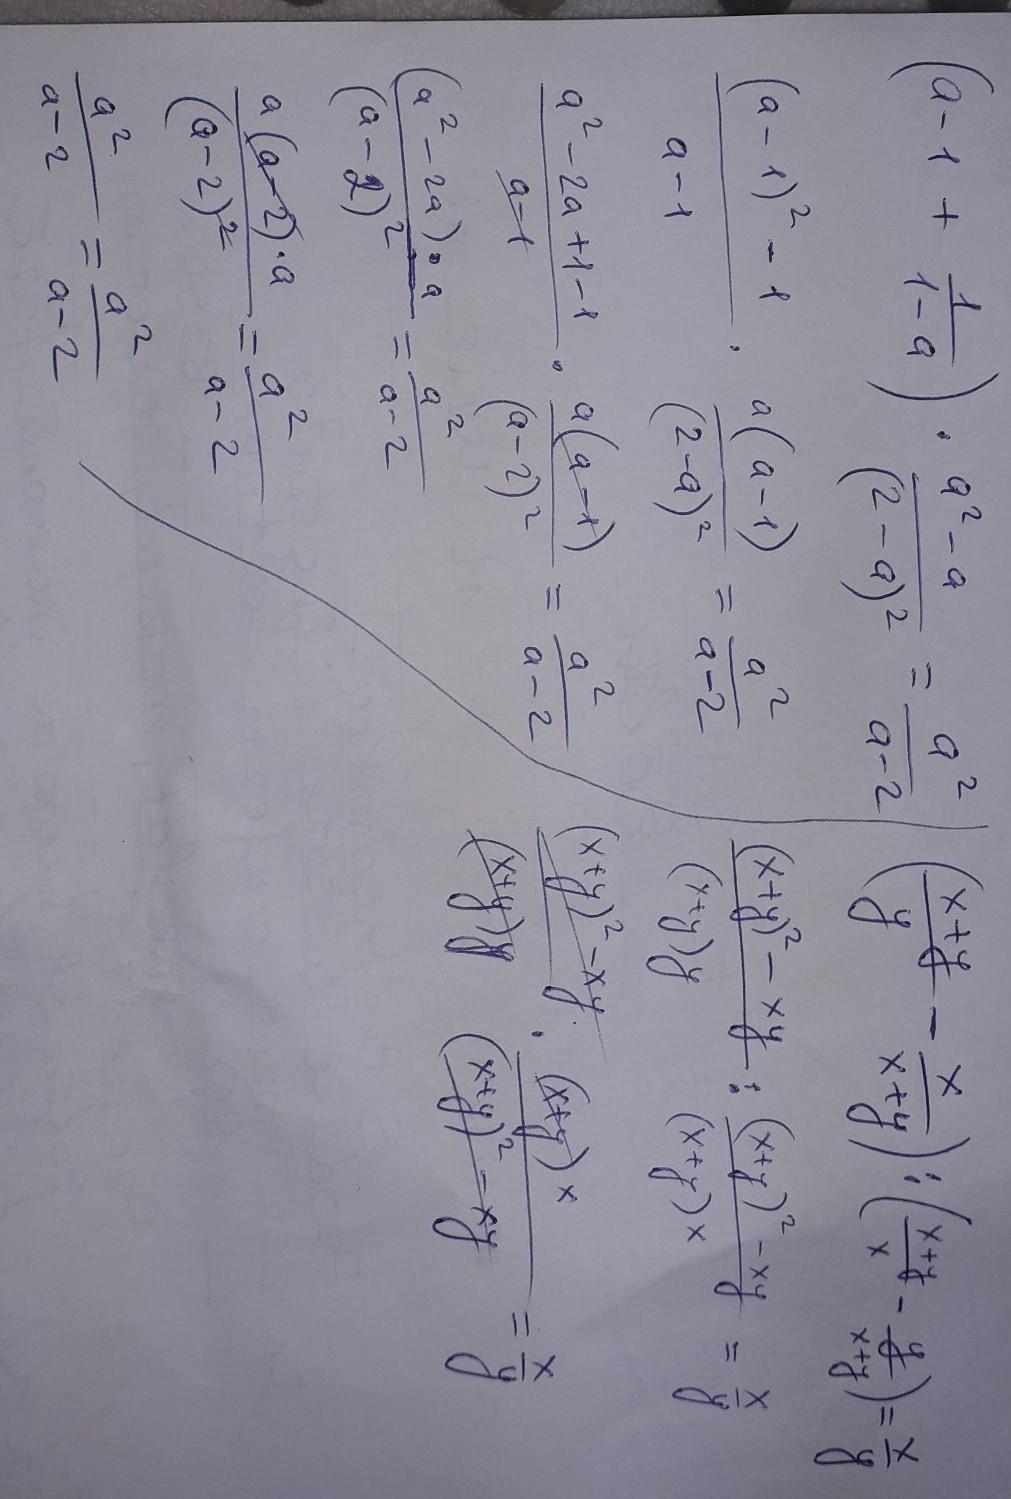 (a-1+\frac{1}{1-a}) \cdot \frac{a^2-a}{(2-a)^2} = \frac{a^2}{a-2}
\frac{(a-1)^2-1}{a-1} \cdot \frac{a(a-1)}{(2-a)^2} = \frac{a^2}{a-2}
\frac{a^2-2a+1-1}{a-1} \cdot \frac{a(a-1)}{(a-2)^2} = \frac{a^2}{a-2}
\frac{(a^2-2a) \cdot a}{(a-2)^2} = \frac{a^2}{a-2}
\frac{a(a-2) \cdot a}{(a-2)^2} = \frac{a^2}{a-2}
\frac{a^2}{a-2} = \frac{a^2}{a-2}
(\frac{x+y}{y} - \frac{x}{x+y}) : (\frac{x+y}{x} - \frac{y}{x+y}) = \frac{x}{y}
\frac{(x+y)^2-xy}{(x+y)y} : \frac{(x+y)^2-xy}{(x+y)x} = \frac{x}{y}
\frac{(x+y)^2-xy}{(x+y)y} \cdot \frac{(x+y)x}{(x+y)^2-xy} = \frac{x}{y}